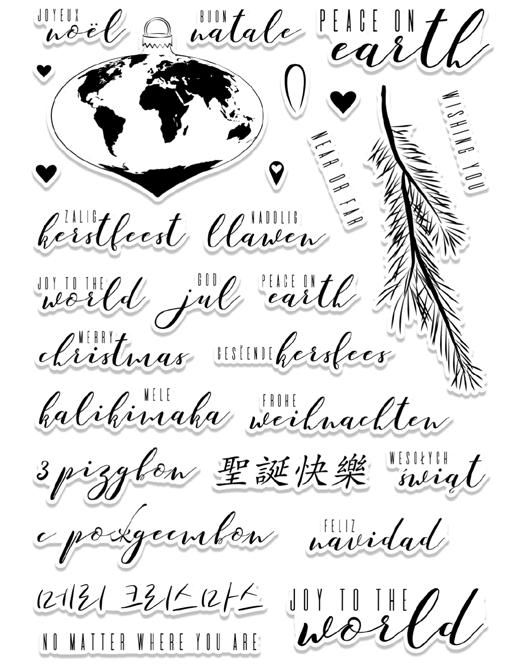 JOYEUX noël
BUON natale
PEACE ON earth
WISHING YOU
NEAR OR FAR
ZALIG kerstfeest
NADOLIG llawen
JOY TO THE world
GOD jul
PEACE ON earth
MERRY christmas
GESËENDE kersfees
MELE kalikimaka
FROHE weihnachten
聖誕快樂
WESOŁYCH świąt
FELIZ navidad
메리 크리스마스
JOY TO THE world
NO MATTER WHERE YOU ARE